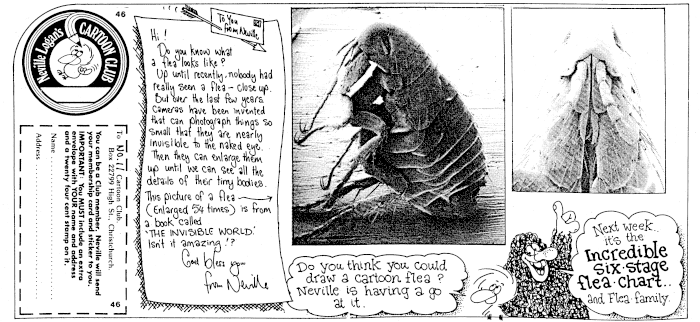 46
Neville Logan's
CARTOON CLUB
To No. 11 Cartoon Club.
Box 22799 High St., Christchurch.
You can be a Club member. Neville will send
your membership card and sticker to you.
IMPORTANT: You MUST include an extra
envelope with YOUR name and address
and a twenty four cent stamp on it.
Name
Address
46
To You
from Neville
Hi!
Do you know what
a flea looks like?
Up until recently, nobody had
really seen a flea - close up.
But over the last few years
cameras have been invented
that can photograph things so
small that they are nearly
invisible to the naked eye.
Then they can enlarge them
up until we can see all the
details of their tiny bodies.
This picture of a flea
(Enlarged 54 times) is from
a book called
'THE INVISIBLE WORLD.'
Isn't it amazing!?
God bless you
from Neville
Do you think you could
draw a cartoon flea?
Neville is having a go
at it.
Next week..
it's the
Incredible
Six-stage
flea-chart..
and Flea-family.